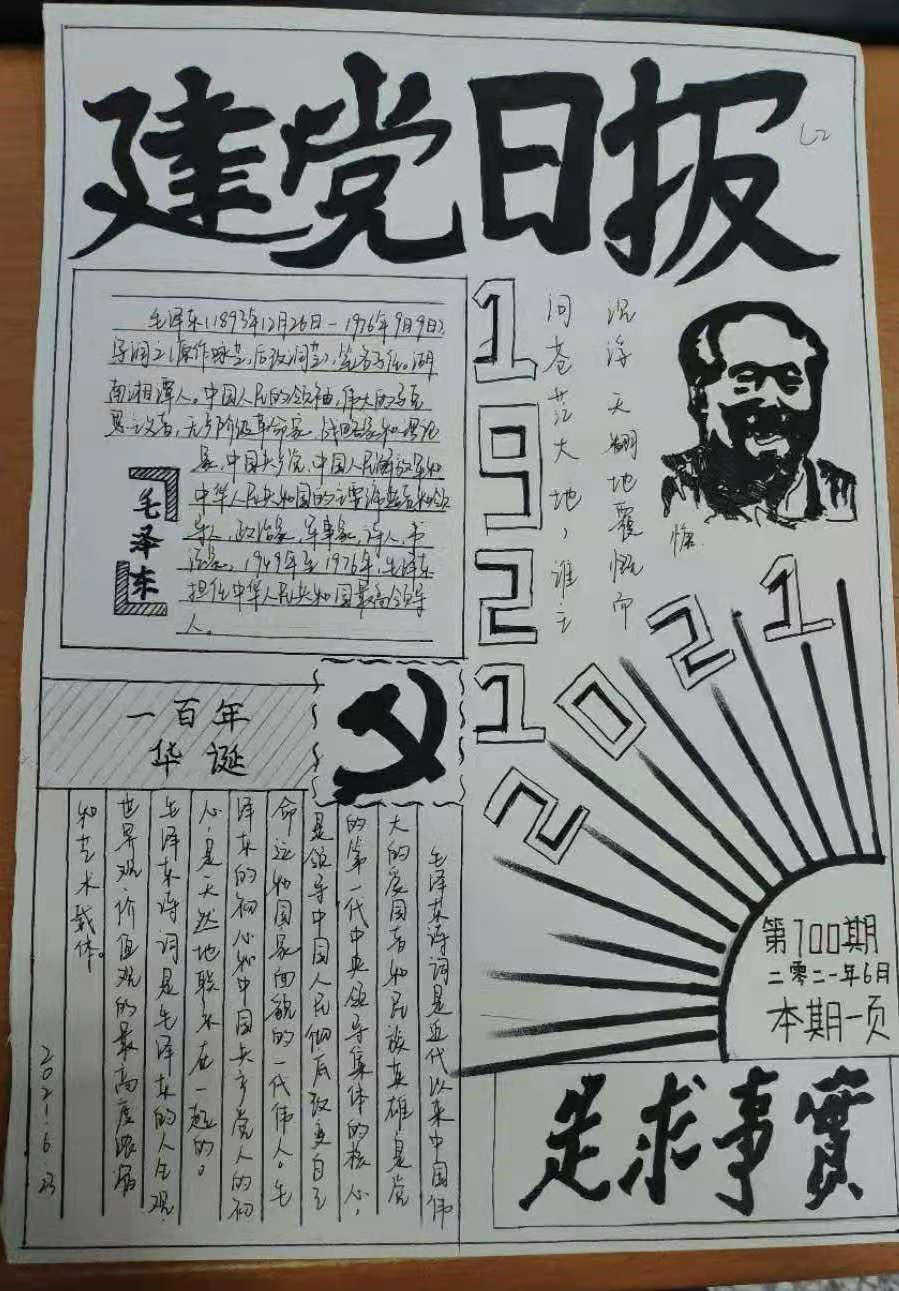 建党日报
毛泽东(1893年12月26日一1976年9月9日)
字润之(原作咏芝,后改润芝),笔名子任。湖
南湘潭人。中国人民的领袖,伟大的马克
思主义者,无产阶级革命家、战略家和理论
家,中国共产党、中国人民解放军和
中华人民共和国的主要缔造者和领
导人,政治家,军事家,诗人,书
法家。1949年至1976年,毛泽东
担任中华人民共和国最高领导
人。
毛泽东
1921
沉浮 天翻地覆慨而
问苍茫大地,谁主
慷
2021
一百年
华诞
毛泽东诗词是近代以来中国伟
大的爱国者和民族英雄是党
的第一代中央领导集体的核心,
是领导中国人民彻底改变自己
命运和国家面貌的一代伟人。毛
泽东的初心和中国共产党人的初
心,是天然地联系在一起的。
毛泽东诗词是毛泽东的人生观、
世界观、价值观的最高度浓缩
和艺术载体。
2021.6.23
第100期
二零二一年6月
本期一页
是求事實